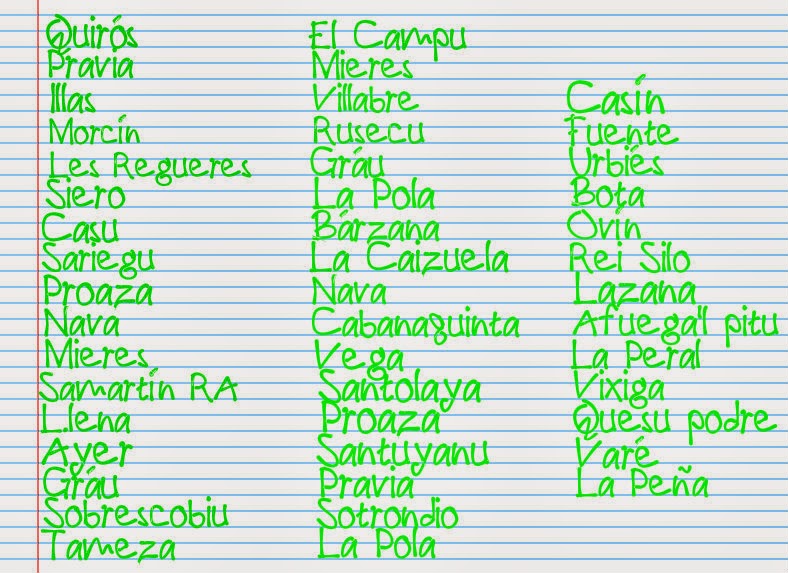 Quirós
Pravia
Illas
Morcín
Les Regueres
Siero
Casu
Sariegu
Proaza
Nava
Mieres
Samartín RA
L.lena
Ayer
Gráu
Sobrescobiu
Tameza
El Campu
Mieres
Villabre
Rusecu
Gráu
La Pola
Bárzana
La Caizuela
Nava
Cabanaquinta
Vega
Santolaya
Proaza
Santuyanu
Pravia
Sotrondio
La Pola
Casín
Fuente
Urbiés
Bota
Ovín
Rei Silo
Lazana
Afuega'l pitu
La Peral
Vixiga
Quesu podre
Varé
La Peña